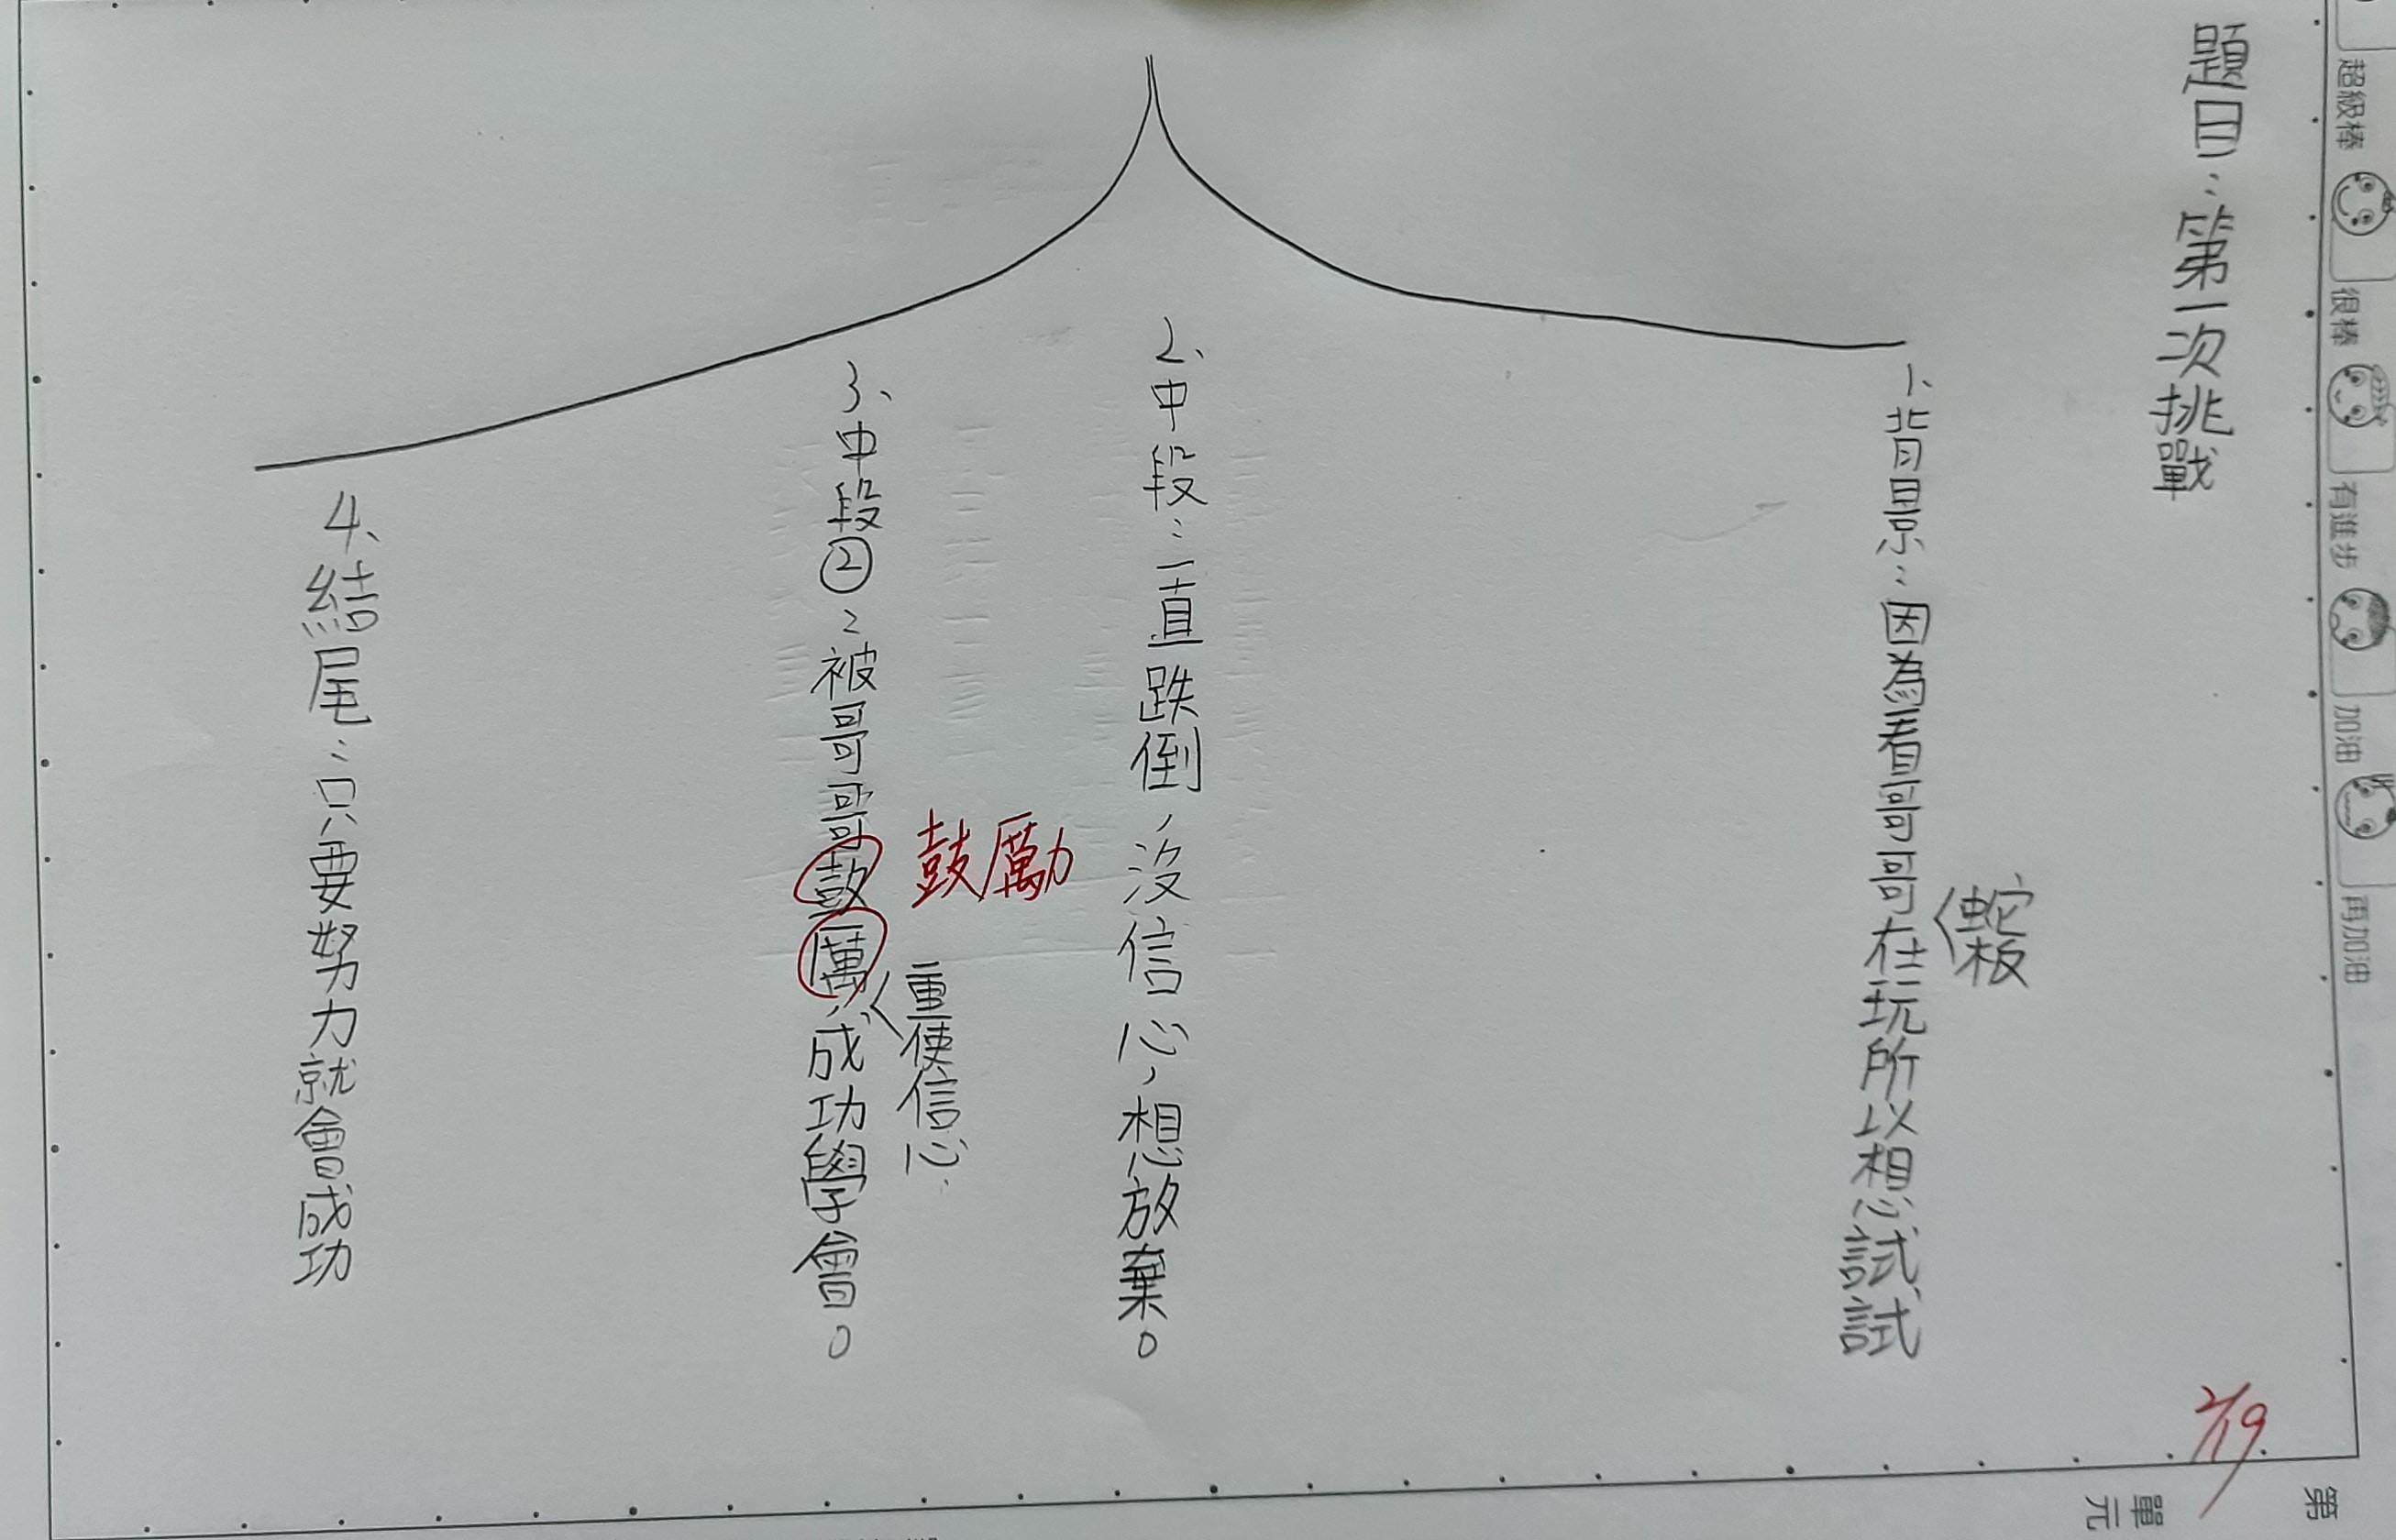 超級棒
很棒
有進步
加油
再加油
第
單元
2/19
題目：第一次挑戰
1、背景：因為看哥哥在玩所以想試試
蛇板
2、中段：一直跌倒，沒信心，想放棄。
鼓勵
重使信心
3、中段②：被哥哥鼓厲，成功學會。
4、結尾：只要努力就會成功